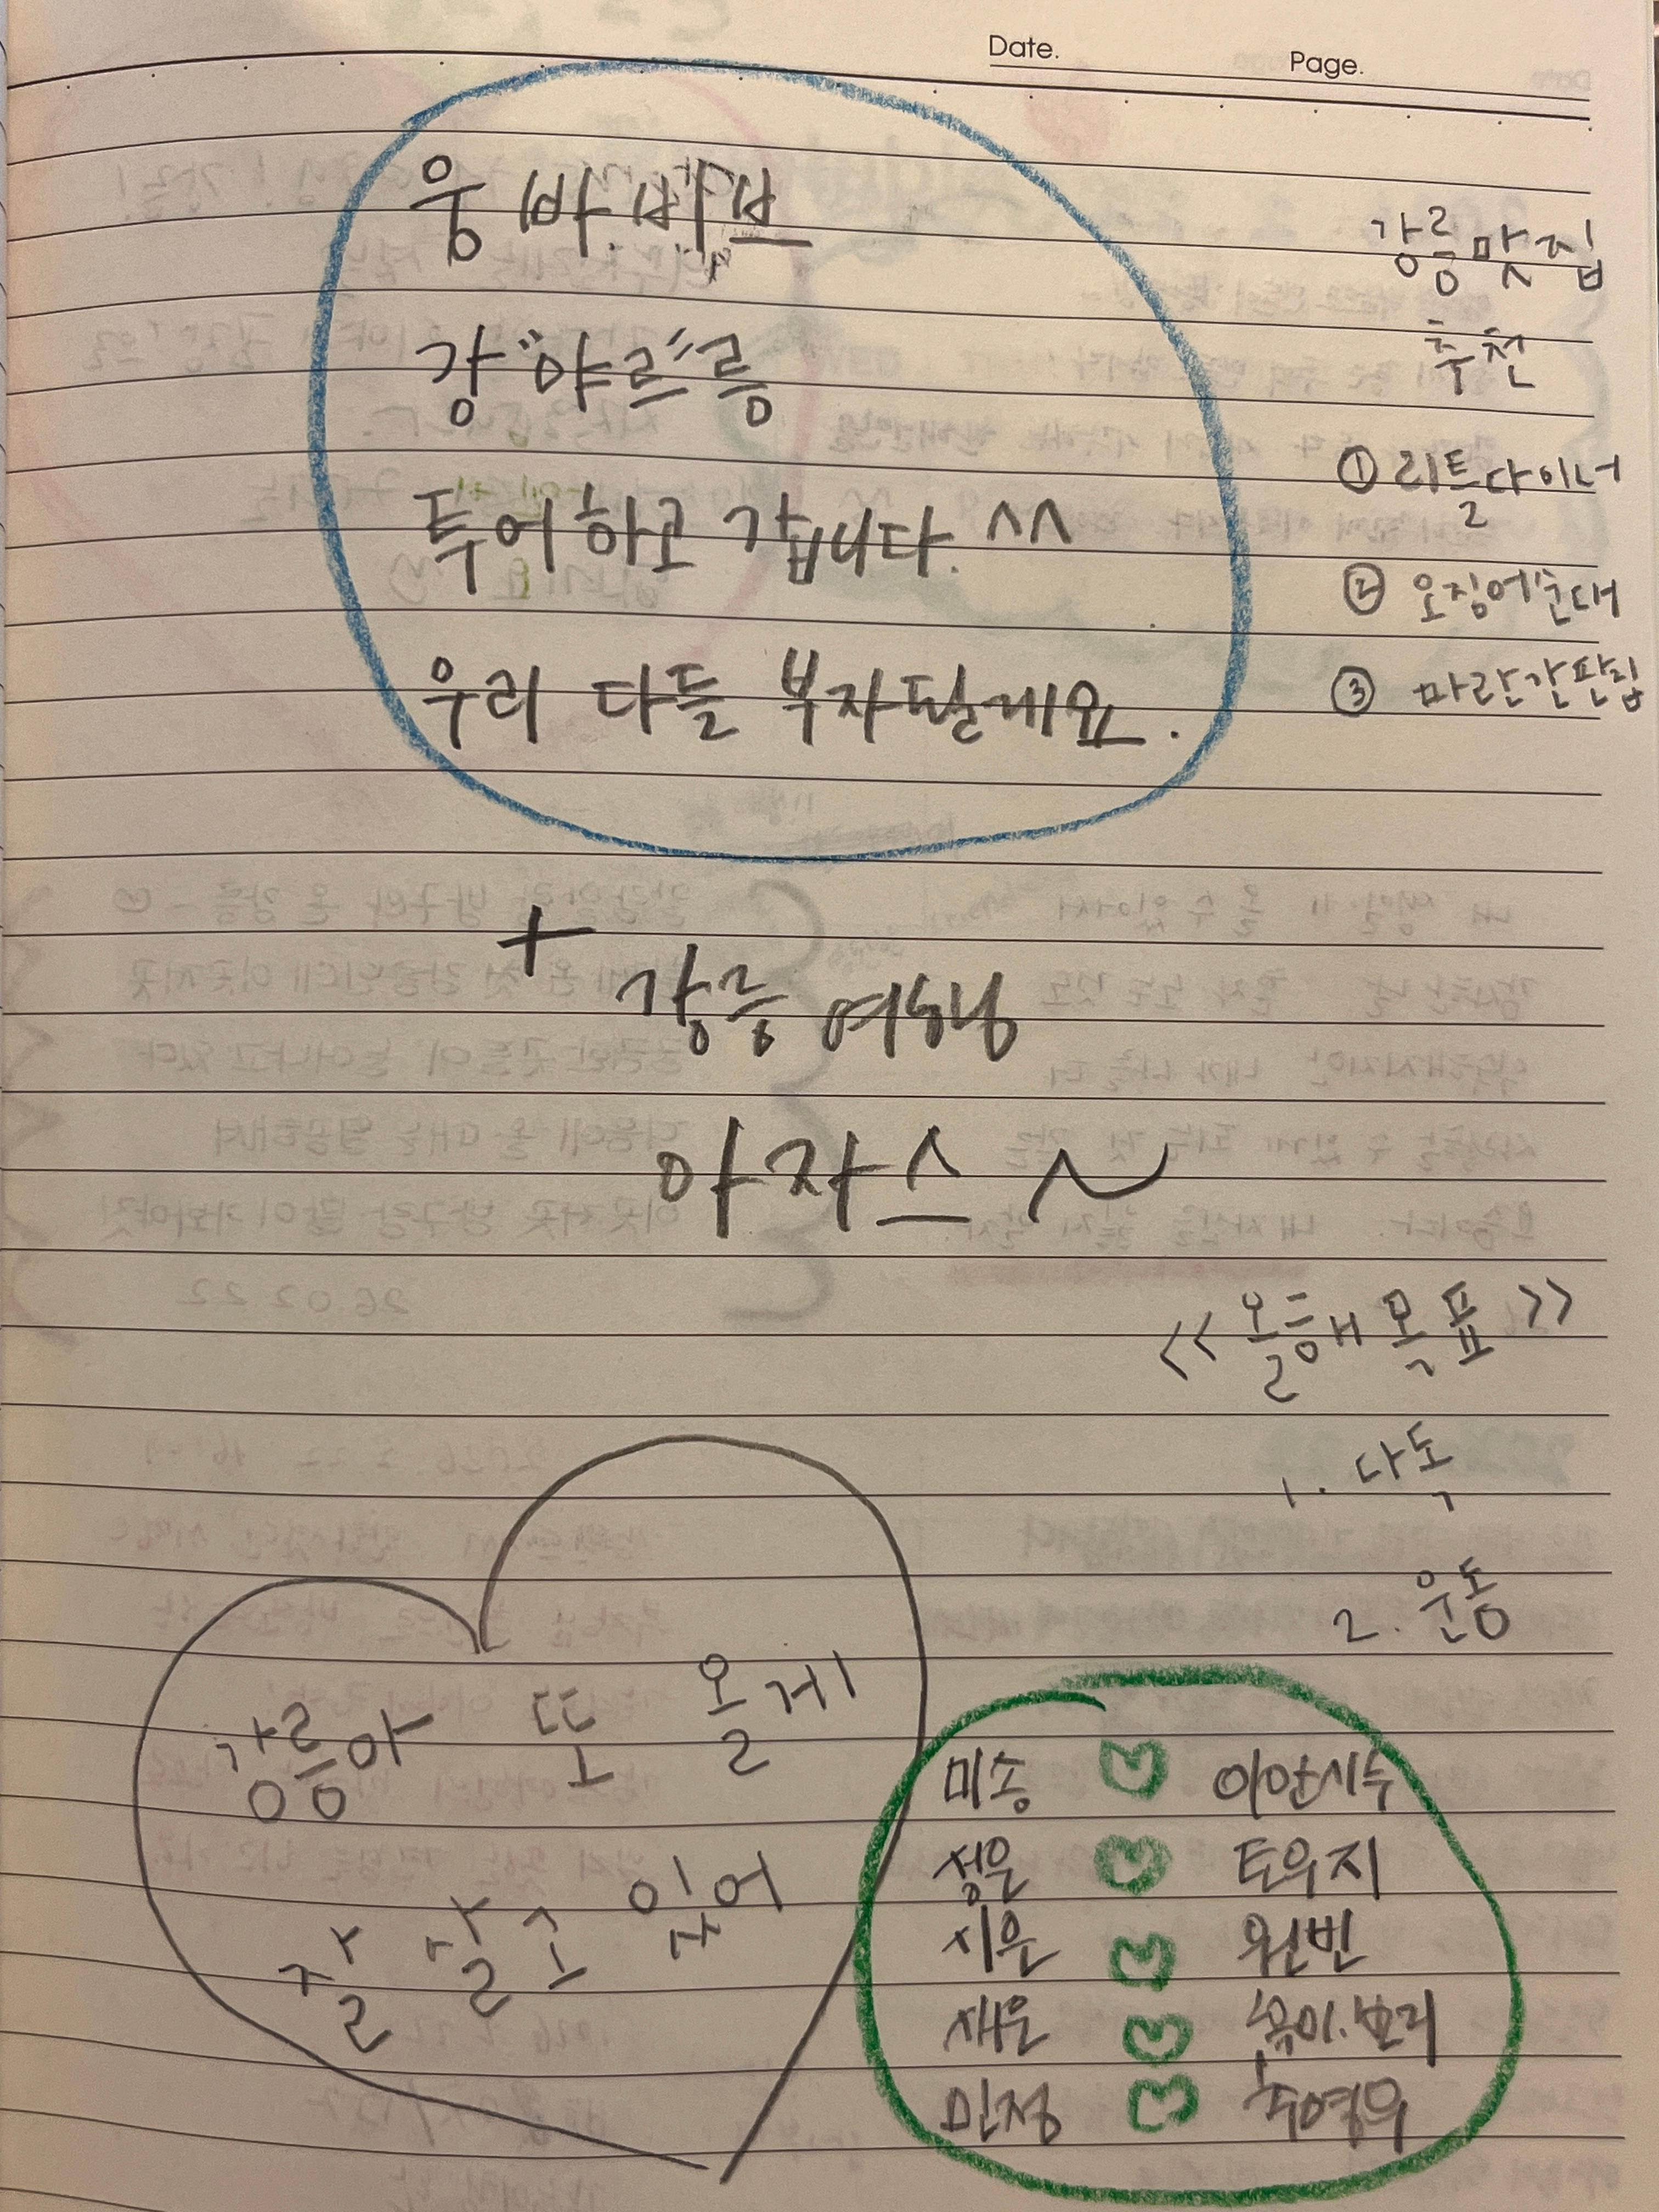 Date.
Page.
웅 빠.삐쁘
강"야르"릉
투어하고 갑니다.^^
우리 다들 부자될게요.
강릉 맛집
추천
① 리틀다이너
② 오징어순대
③ 파란간판집
+ 강릉 여행
아자스~
<<올해 목표>>
1. 다독
2. 운동
강릉아 또 올게
잘 살고 있어
미송 이안시누
정은 토우지
지은 원빈
재은 보리
민정 추영우